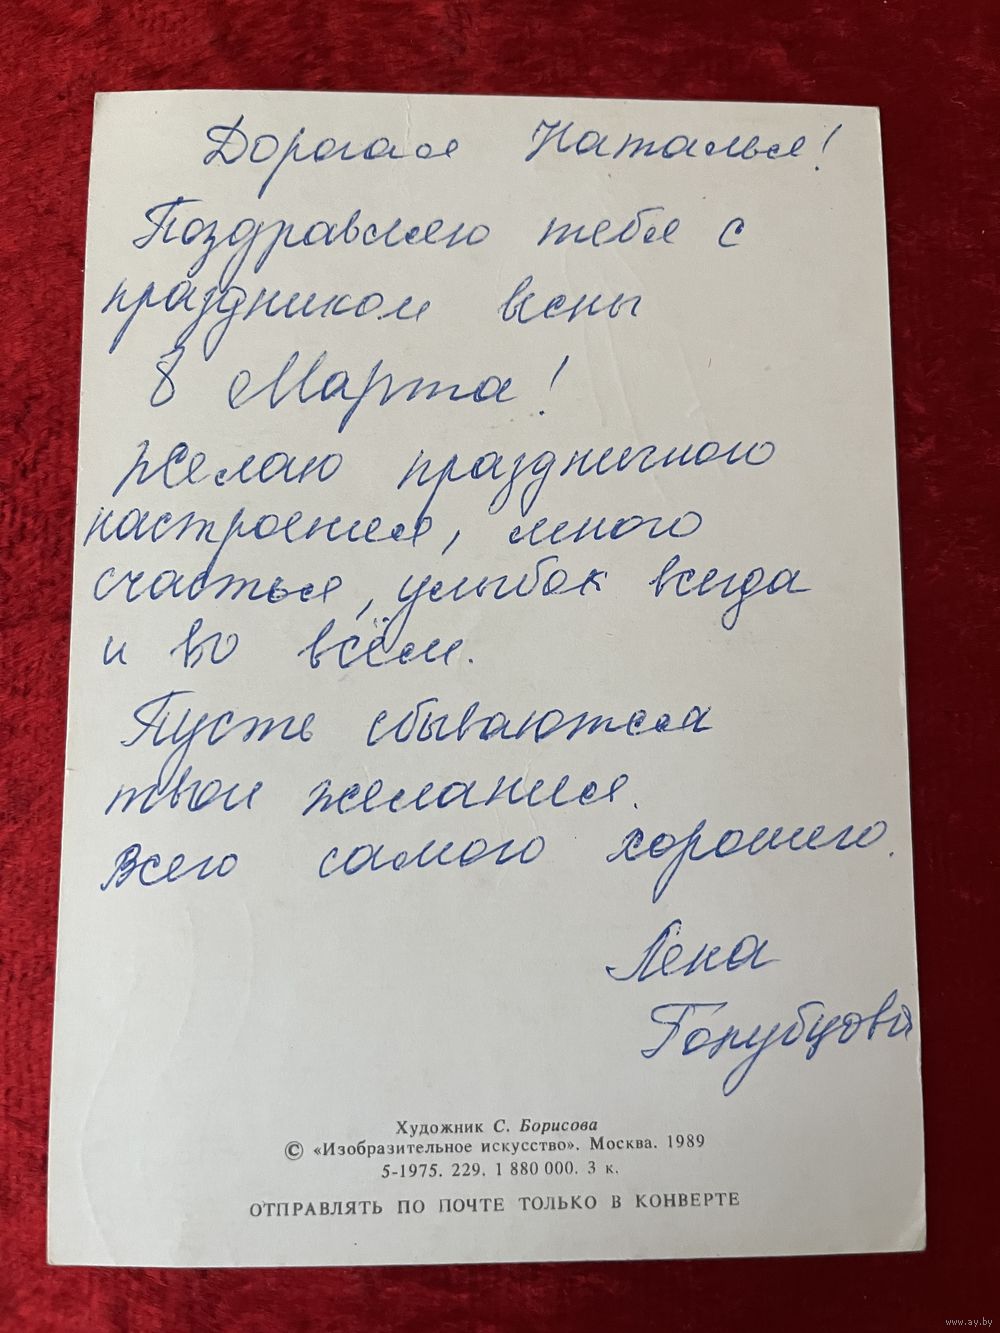 Дорогая Наталья!
Поздравляю тебя с
праздником весны
8 Марта!
Желаю праздничного
настроения, много
счастья, улыбок всегда
и во всём.
Пусть сбываются
твои желания.
Всего самого хорошего.
Лена
Голубцова
Художник С. Борисова
© «Изобразительное искусство». Москва. 1989
5-1975. 229. 1 880 000. 3 к.
ОТПРАВЛЯТЬ ПО ПОЧТЕ ТОЛЬКО В КОНВЕРТЕ
www.ay.by